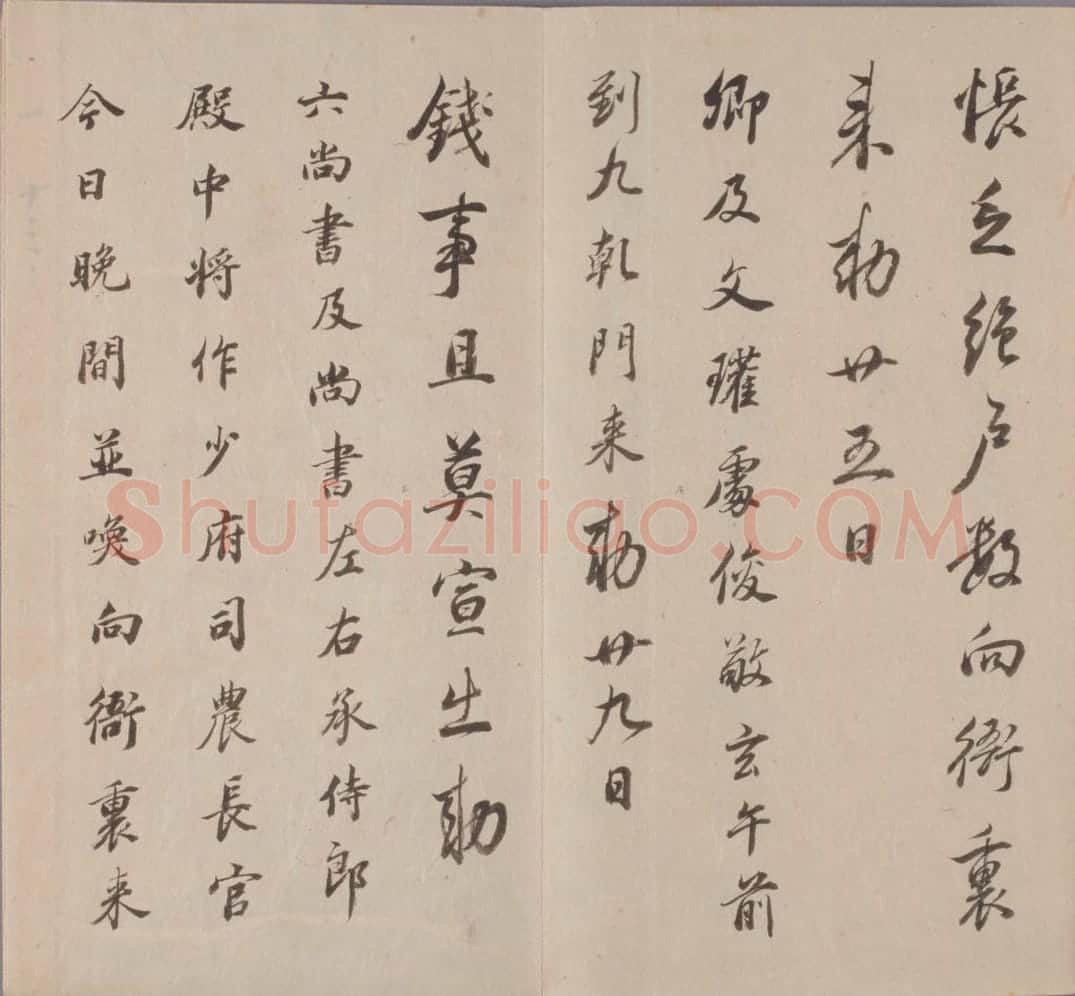 帳之絕户數向衙裏
来勅廿五日
卿及文瓘處俊敬玄午前
到九乾門来勅廿九日
錢事且莫宣出勅
六尚書及尚書左右承侍郎
殿中将作少府司農長官
今日晚間並喚向衙裏来
Shufaziliao.COM